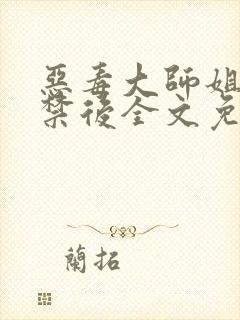 惡毒大師姐
禁後全文免
蘭拓